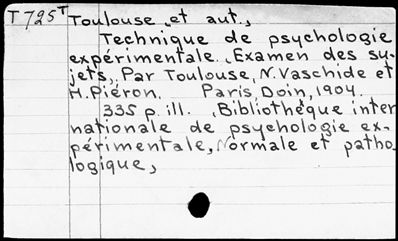 T725T Toulouse et aut.,
Technique de psychologie
expérimentale. Examen des su-
jets, Par Toulouse, N. Vaschide et
H. Piéron. Paris, Doin, 1904.
335 p. ill. Bibliothèque inter
nationale de psychologie ex-
périmentale, Normale et patho
logique,